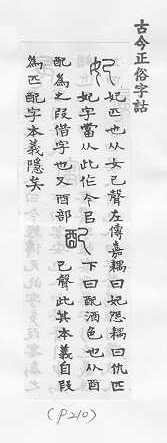 古今正俗字詁
妃
妃匹也从女己聲左傳嘉耦曰妃怨耦曰仇匹
妃字當从此作今㠯
配為之叚借字也又酉部
配
下曰配酒色也从酉
己聲此其本義自叚
為匹配字本義隱矣
(P210)